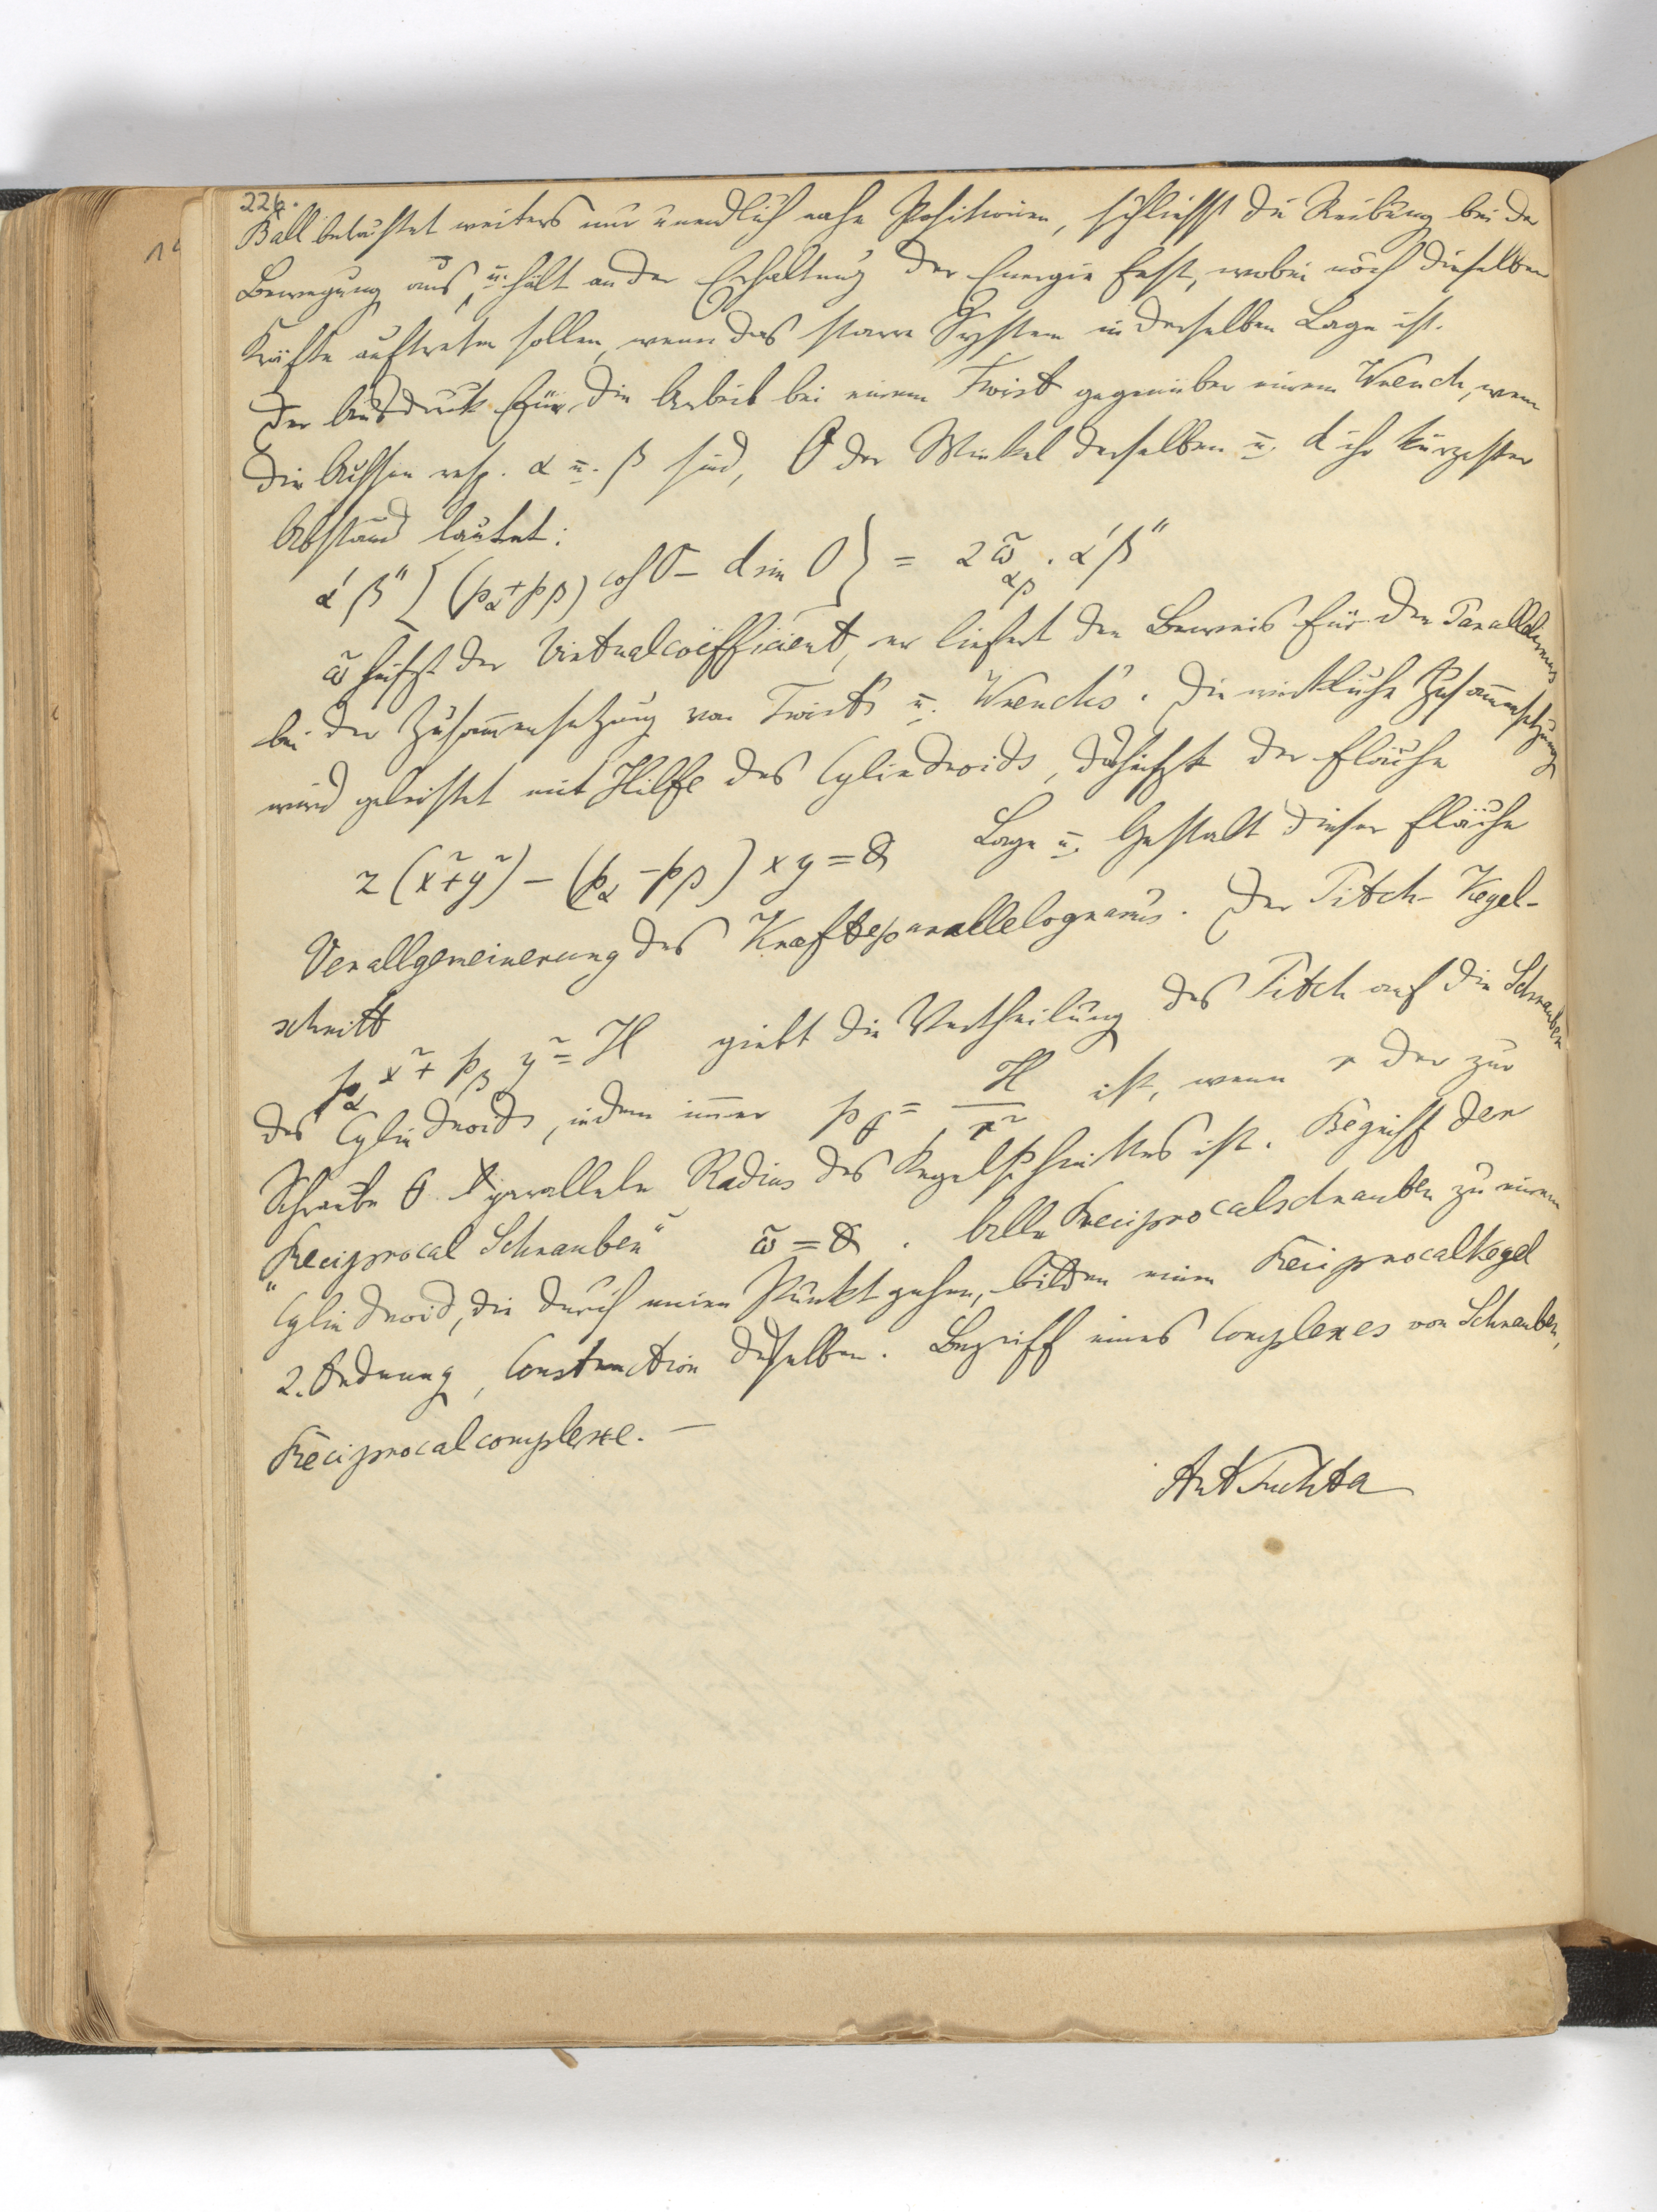 226.
Ball betrachtet weiters nur unendlich nahe Positionen, schliesst die Reibung bei der
Bewegung aus, u. hält an der Erhaltung der Energie fest, wobei noch dieselben
Kräfte auftreten sollen, wenn das starre System in derselben Lage ist.
Der Ausdruck für die Arbeit bei einem Twist gegenüber einem Wrench, wenn
die Achsen resp. α u. β sind, O der Winkel derselben u. d ihr kürzester
Abstand lautet:
α' β'' [(p_α + p_β) cos O − d sin O} = 2 ω̃_αβ . α'β''
ω̃ heisst der Virtualcoëfficient, er liefert den Beweis für den Parallelismus
bei der Zusammensetzung von Twists u. Wrenchs. Die wirkliche Zusammensetzung
wird geleistet mit Hilfe des Cylindroids, das heisst der Fläche
z (x² + y²) − (p_α − p_β) x y = 0 Lage u. Gestalt dieser Fläche
Verallgemeinerung des Kräfteparallelograms. Der Pitch-Kegel-
schnitt
p_α x² + p_β y² = H giebt die Vertheilung des Pitch auf die Schrauben
des Cylindroids, indem immer p_θ = H / r² ist, wenn r der zur
Schraube θ parallele Radius des Kegelschnittes ist. Begriff der
"Reciprocal Schrauben" ω̃ = 0 . Alle Reciprocalschrauben zu einem
Cylindroid, die durch einen Punkt gehen, bilden einen Reciprocalkegel
2. Ordnung, Construction desselben. Begriff eines Complexes von Schrauben,
Reciprocalcomplexe. —
Ant Puchta